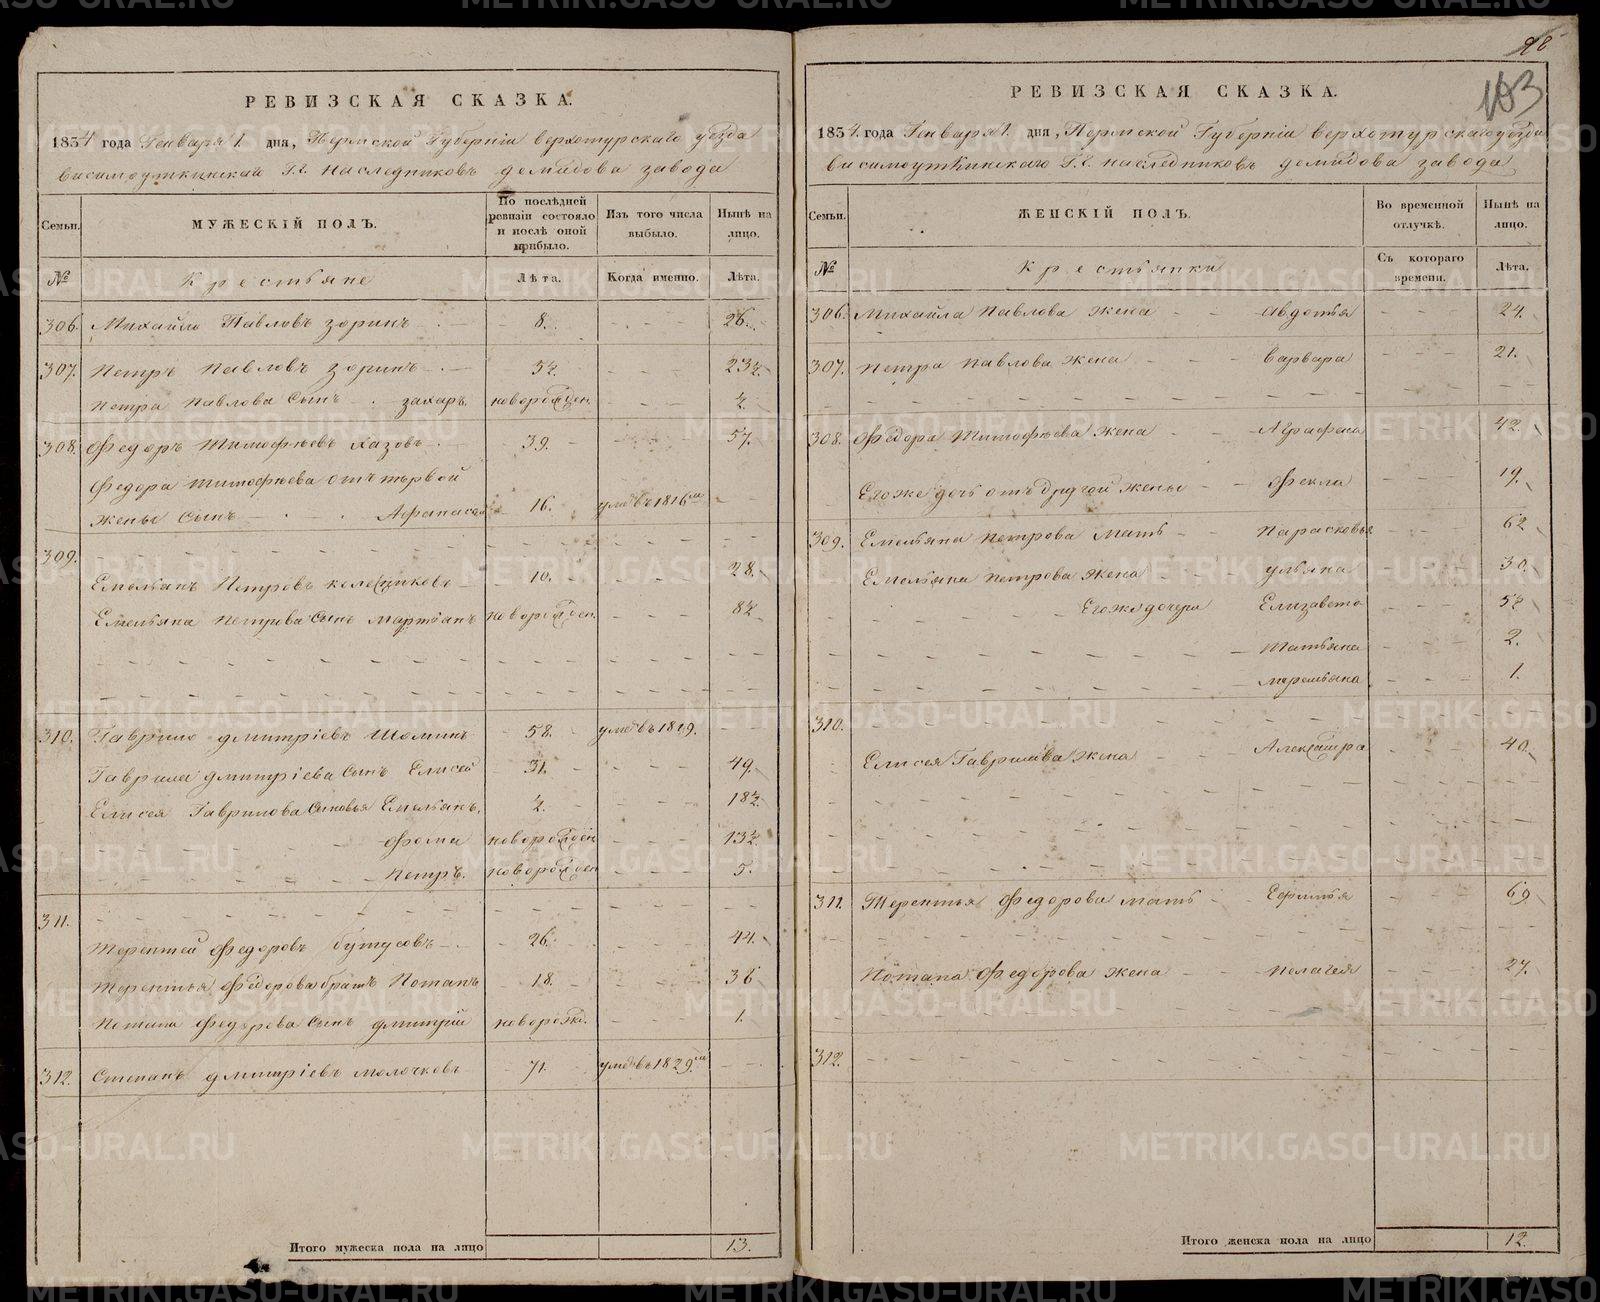 98
103
РЕВИЗСКАЯ СКАЗКА.
1834 года Генваря 1. дня, Пермской Губерніи верхотурскаго уѣзда
висимоуткинскаго Г.г. наследниковъ демидова завода
Семьи.
МУЖЕСКІЙ ПОЛЪ.
По послѣдней ревизіи состояло и послѣ оной прибыло.
Изъ того числа выбыло.
Нынѣ на лицо.
№ Крестьяне Лѣта. Когда именно. Лѣта.
306. Михайло Павловъ зоринъ 8. 26.
307. Петръ Павловъ зоринъ 5½. 23½.
Петра Павлова Сынъ захаръ новорожден. ½.
308. Федоръ Тимофѣевъ Хазовъ 39. 57.
Федора Тимофѣева отъ первой
жены Сынъ Афанасей 16. умре въ 1816м
309.
Емельянъ Петровъ колесниковъ 10. 28.
Емельяна Петрова Сынъ мартьянъ новорожден. 8½
310. Гаврило дмитріевъ Шоминъ 58. умре въ 1829.
Гаврила дмитріева Сынъ Елисей 31. 49.
Елисея Гаврилова Сыновья Емельянъ. ½. 18½.
фома новорожден 13½.
Петръ. новорожден 5.
311.
Терентей федоровъ бутусовъ 26. 44.
Терентья федорова братъ Потапъ 18. 36
Потапа федорова Сынъ дмитрій новорожд. 1.
312. Степанъ дмитріевъ молочковъ 71. умре въ 1829м
Итого мужеска пола на лицо 13.
РЕВИЗСКАЯ СКАЗКА.
1834. года Генваря 1. дня, Пермской Губерніи верхотурскаго уѣзда
висимоуткинскаго Г.г. наследниковъ демидова завода
Семьи.
ЖЕНСКІЙ ПОЛЪ.
Во временной отлучкѣ.
Нынѣ на лицо.
№ Крестьянки Съ котораго времени. Лѣта.
306. Михайла Павлова жена Авдотья 24.
307. Петра Павлова жена варвара 21.
308. Федора Тимофѣева жена Аграфена 42.
Егоже дочь отъ другой жены Фекла 19.
309. Емельяна Петрова мать Парасковья 62
Емельяна Петрова жена ульяна 30.
Егоже дочери Елизавета 5½
Татьяна 2.
1.
310.
Елисея Гаврилова жена Александра 40.
311. Терентья федорова мать Ефимья 69
Потапа федорова жена Пелагея 27.
312.
Итого женска пола на лицо 12.
METRIKI.GASO-URAL.RU